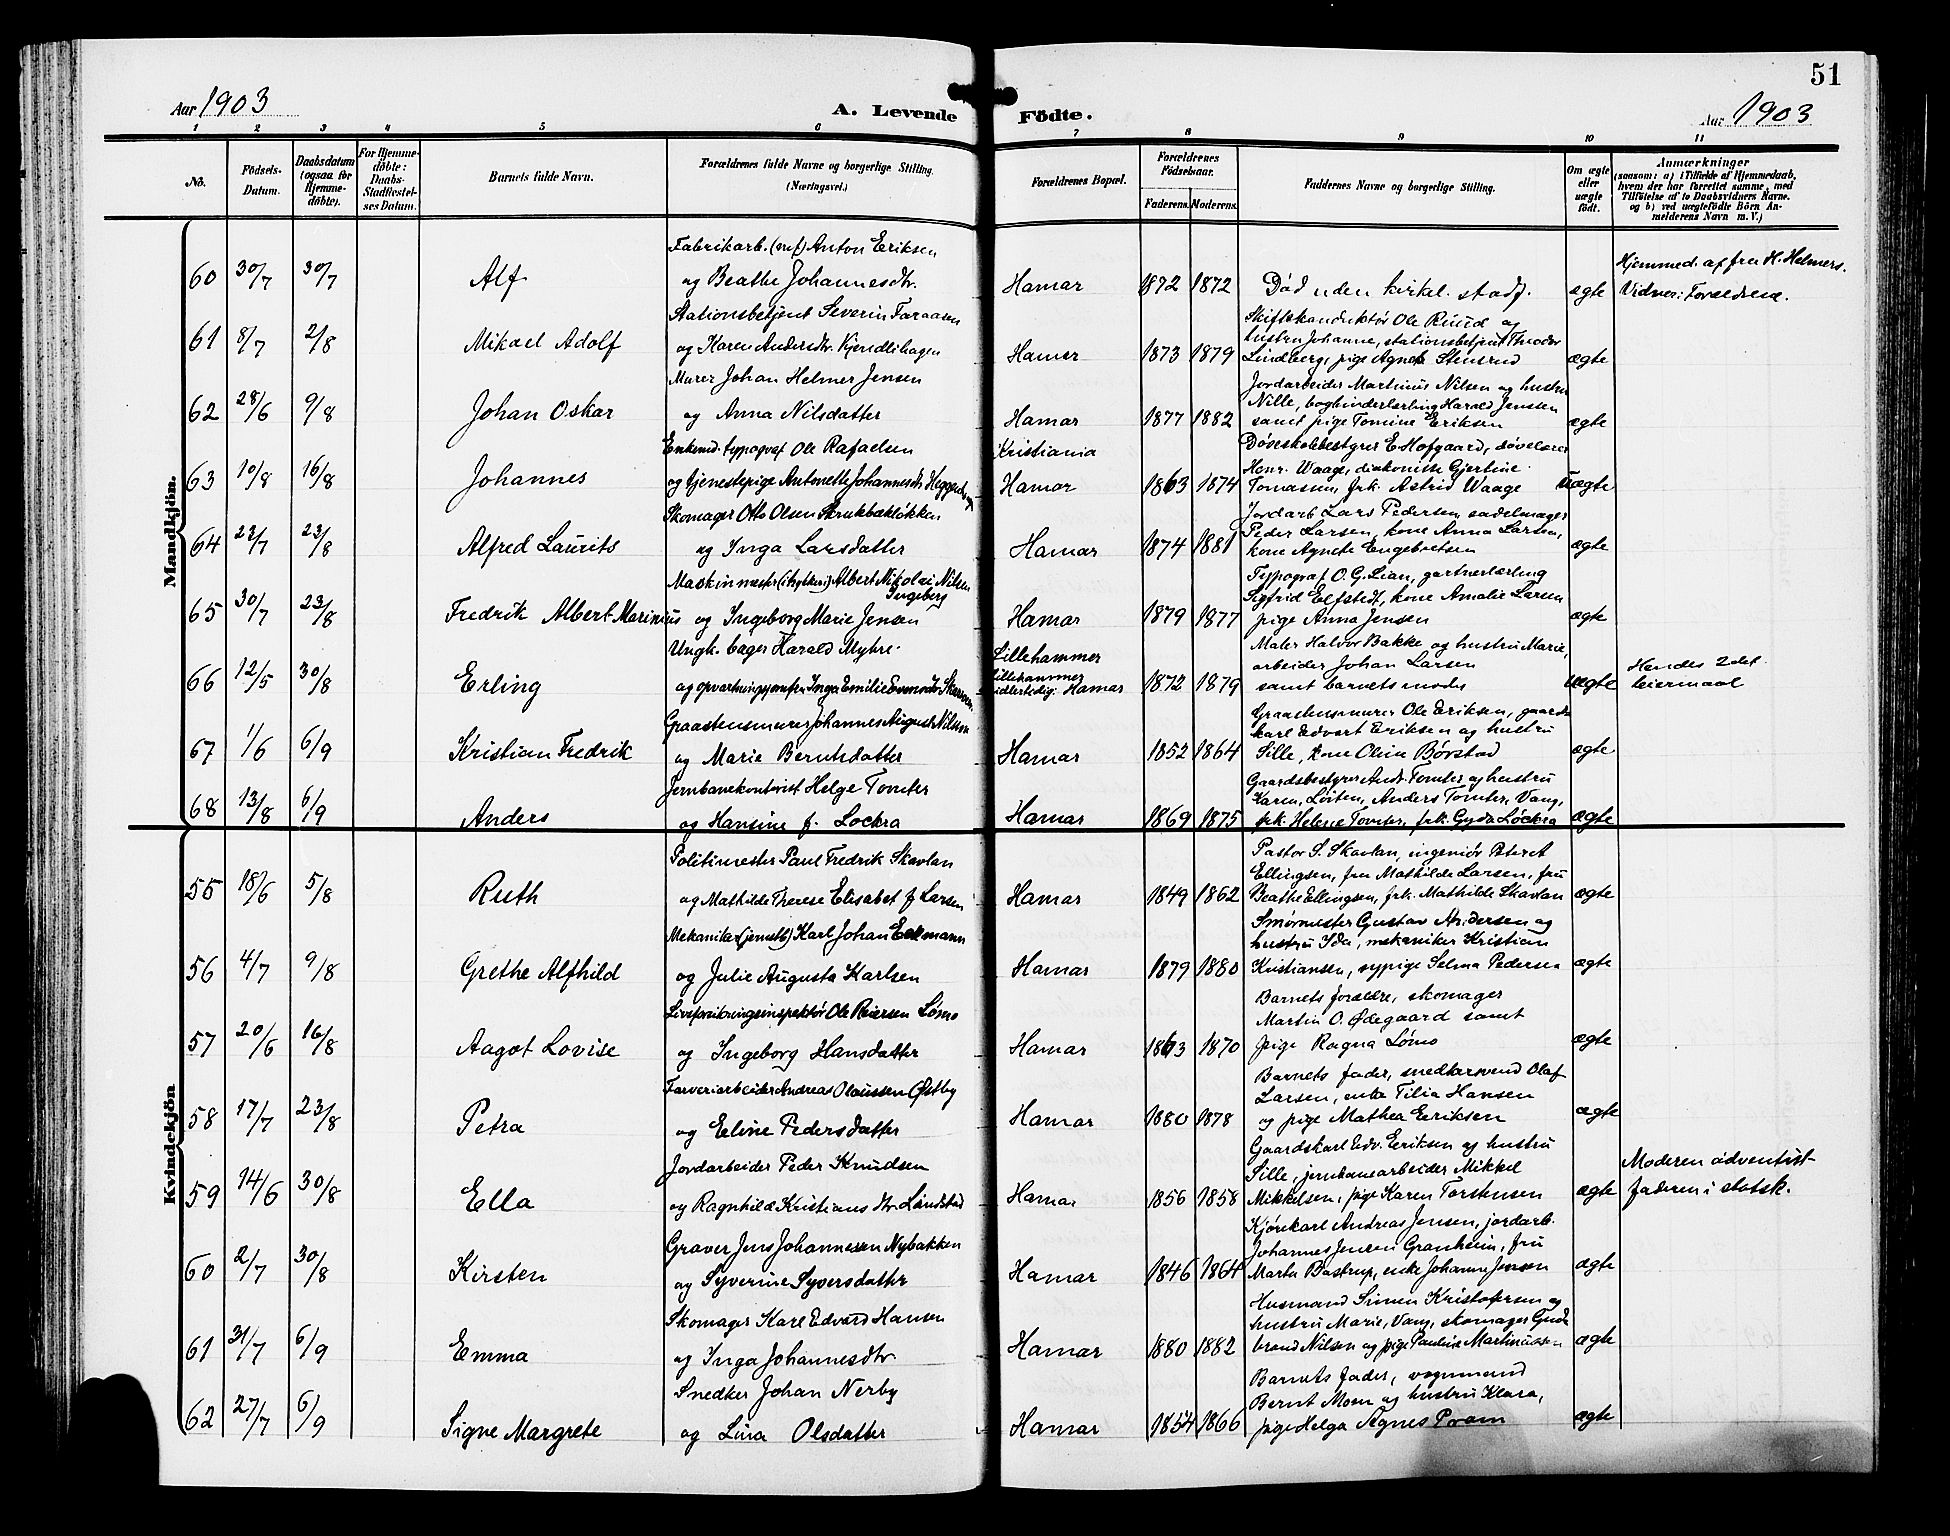 51
Aar 1903
A. Levende Födte.
Aar 1903
1 2 3 4 5 6 7 8 9 10 11
No.
Födsels-Datum.
Daabsdatum (ogsaa for Hjemme-döbte).
For Hjemme-döbte: Daabs-Stadfæstel-ses Datum.
Barnets fulde Navn.
Forældrenes fulde Navne og borgerlige Stilling. (Næringsvei.)
Forældrenes Bopæl.
Forældrenes Födselsaar.
Faderens. Moderens.
Faddernes Navne og borgerlige Stilling.
Om ægte eller uægte födt.
Anmærkninger
(saasom: a) i Tilfælde af Hjemmedaab, hvem der har forrettet samme, med Tilföielse af to Daabsvidners Navne, og b) ved uægtefödte Börn An-melderens Navn m. V.)
Mandkjön.
Fabrikarb. Anton Eriksen
60 30/7 30/7 Alf og Beathe Johannesdtr. Hamar 1872 1872 Död uden kirkel. stadf. ægte
Hjemmed. af fru H. Helmers.
Vidner: Forældrene.
Stationsbetjent Severin Faraasen
61 8/7 2/8 Mikael Adolf og Karen Andersdtr. Kjendlihagen Hamar 1873 1879
Skiftekonduktör Ole Ruud og
hustru Johanne, stationsbetjent Theodor
Lindberg, pige Agnete Stensrud ægte
Murer Johan Helmer Jensen
62 28/6 9/8 Johan Oskar og Anna Nilsdatter Hamar 1877 1882
Jordarbeider Martinus Nilsen og hustru
Nille, bogbinderlærling Harald Jensen
samt pige Tomine Eriksen ægte
Enkemd. typograf Ole Rafaelsen Kristiania
63 10/8 16/8 Johannes og tjenestepige Antonette Johannesdtr. Hamar 1863 1874
Døveskolebestyrer E. Hofgaard, døvelærer
Henr. Waage, diakonisse Gjertine
Tomassen, frk. Astrid Waage Uægte
Skomager Otto Olsen Strukbækløkken
64 23/7 23/8 Alfred Laurits og Inga Larsdatter Hamar 1874 1881
Jordarb Lars Pedersen, sadelmager
Peder Larsen, kone Anna Larsen,
kone Agnete Engebretsen ægte
Maskinmester Albert Nikolai Nilsen
Ingeberg
65 30/7 23/8 Fredrik Albert Marinius og Ingeborg Marie Jensen Hamar 1879 1877
Typograf O. G. Lian, gartnerlærling
Sigfrid Elfstedt, kone Amalie Larsen
pige Anna Jensen ægte
Ungk. bager Harald Myhre. Lillehammer
66 12/5 30/8 Erling og opvartningsjomfru Inga Emilie Lillehammer
midlertidig: Hamar 1872 1879
Maler Halvor Bakke og hustru Marie,
arbeider Johan Larsen
samt barnets moder uægte
Hendes 2det
leiermaal
Graastensmurer Johannes August Nilsson
67 1/6 6/9 Kristian Fredrik og Marie Berntsdatter Hamar 1852 1864
Graastensmurer Ole Eriksen, gaards-
karl Edvart Eriksen og hustru
Sille, kone Olina Børstad ægte
Jernbanekontorist Helge Tomter
68 13/8 6/9 Anders og Hansine f. Lockra Hamar 1869 1875
Gaardsbestyrer Andr. Tomter og hustru
Karen, Løiten, Anders Tomter, Vang,
frk. Helene Tomter, frk. Gyda Löckra ægte
Kvindekjön
Politimester Paul Fredrik Skavlan
55 18/6 5/8 Ruth og Mathilde Therese Elisabet f. Larsen Hamar 1849 1862
Pastor S. Skavlan, ingeniör Peter
Ellingsen, fru Mathilde Larsen, fru
Beathe Ellingsen, frk. Mathilde Skavlan ægte
Mekaniker Karl Johan Eekmann
56 4/7 9/8 Grethe Alfhild og Julie Augusta Karlsen Hamar 1879 1880
Smørmester Gustav Andersen og
hustru Ida, mekaniker Kristian
Kristiansen, sypige Selma Pedersen ægte
Livsforsikringsinspektör Ole Reiersen Lømo
57 20/6 16/8 Aagot Lovise og Ingeborg Hansdatter Hamar 1863 1870
Barnets forældre, skomager
Martin O. Ødegaard samt
pige Ragna Lømo ægte
Farveriarbeider Andreas Olaussen Østby
58 17/7 23/8 Petra og Eline Pedersdatter Hamar 1880 1878
Barnets fader, snedkersvend Olaf
Larsen, enke Tilia Hansen
og pige Mathea Eriksen ægte
Jordarbeider Peder Knudsen
59 14/6 30/8 Ella og Ragnhild Kristiansdtr. Lundstad Hamar 1856 1858
Gaardskarl Edv. Eriksen og hustru
Sille, jernbanearbeider Mikkel
Mikkelsen, pige Karen Torstensen ægte
Moderen adventist-
faderen i statsk.
Graver Jens Johannesen Nybakken
60 2/7 30/8 Kirsten og Syverine Syversdatter Hamar 1846 1864
Kjørekarl Andreas Jensen, jordarb.
Johannes Jensen Granheim, fru
Marta Bastrup, enke Johanne Jensen ægte
Skomager Karl Edvard Hansen
61 31/7 6/9 Emma og Inga Johannesdtr. Hamar 1880 1882
Husmand Simen Kristofersen og
hustru Marie, Vang, skomager Gud-
brand Nilsen og pige Pauline Martinussen ægte
Snedker Johan Nerby
62 27/7 6/9 Signe Margrete og Lina Olsdatter Hamar 1854 1866
Barnets fader, vognmand
Bernt Moen og hustru Klara,
pige Helga Agnes Pram ægte